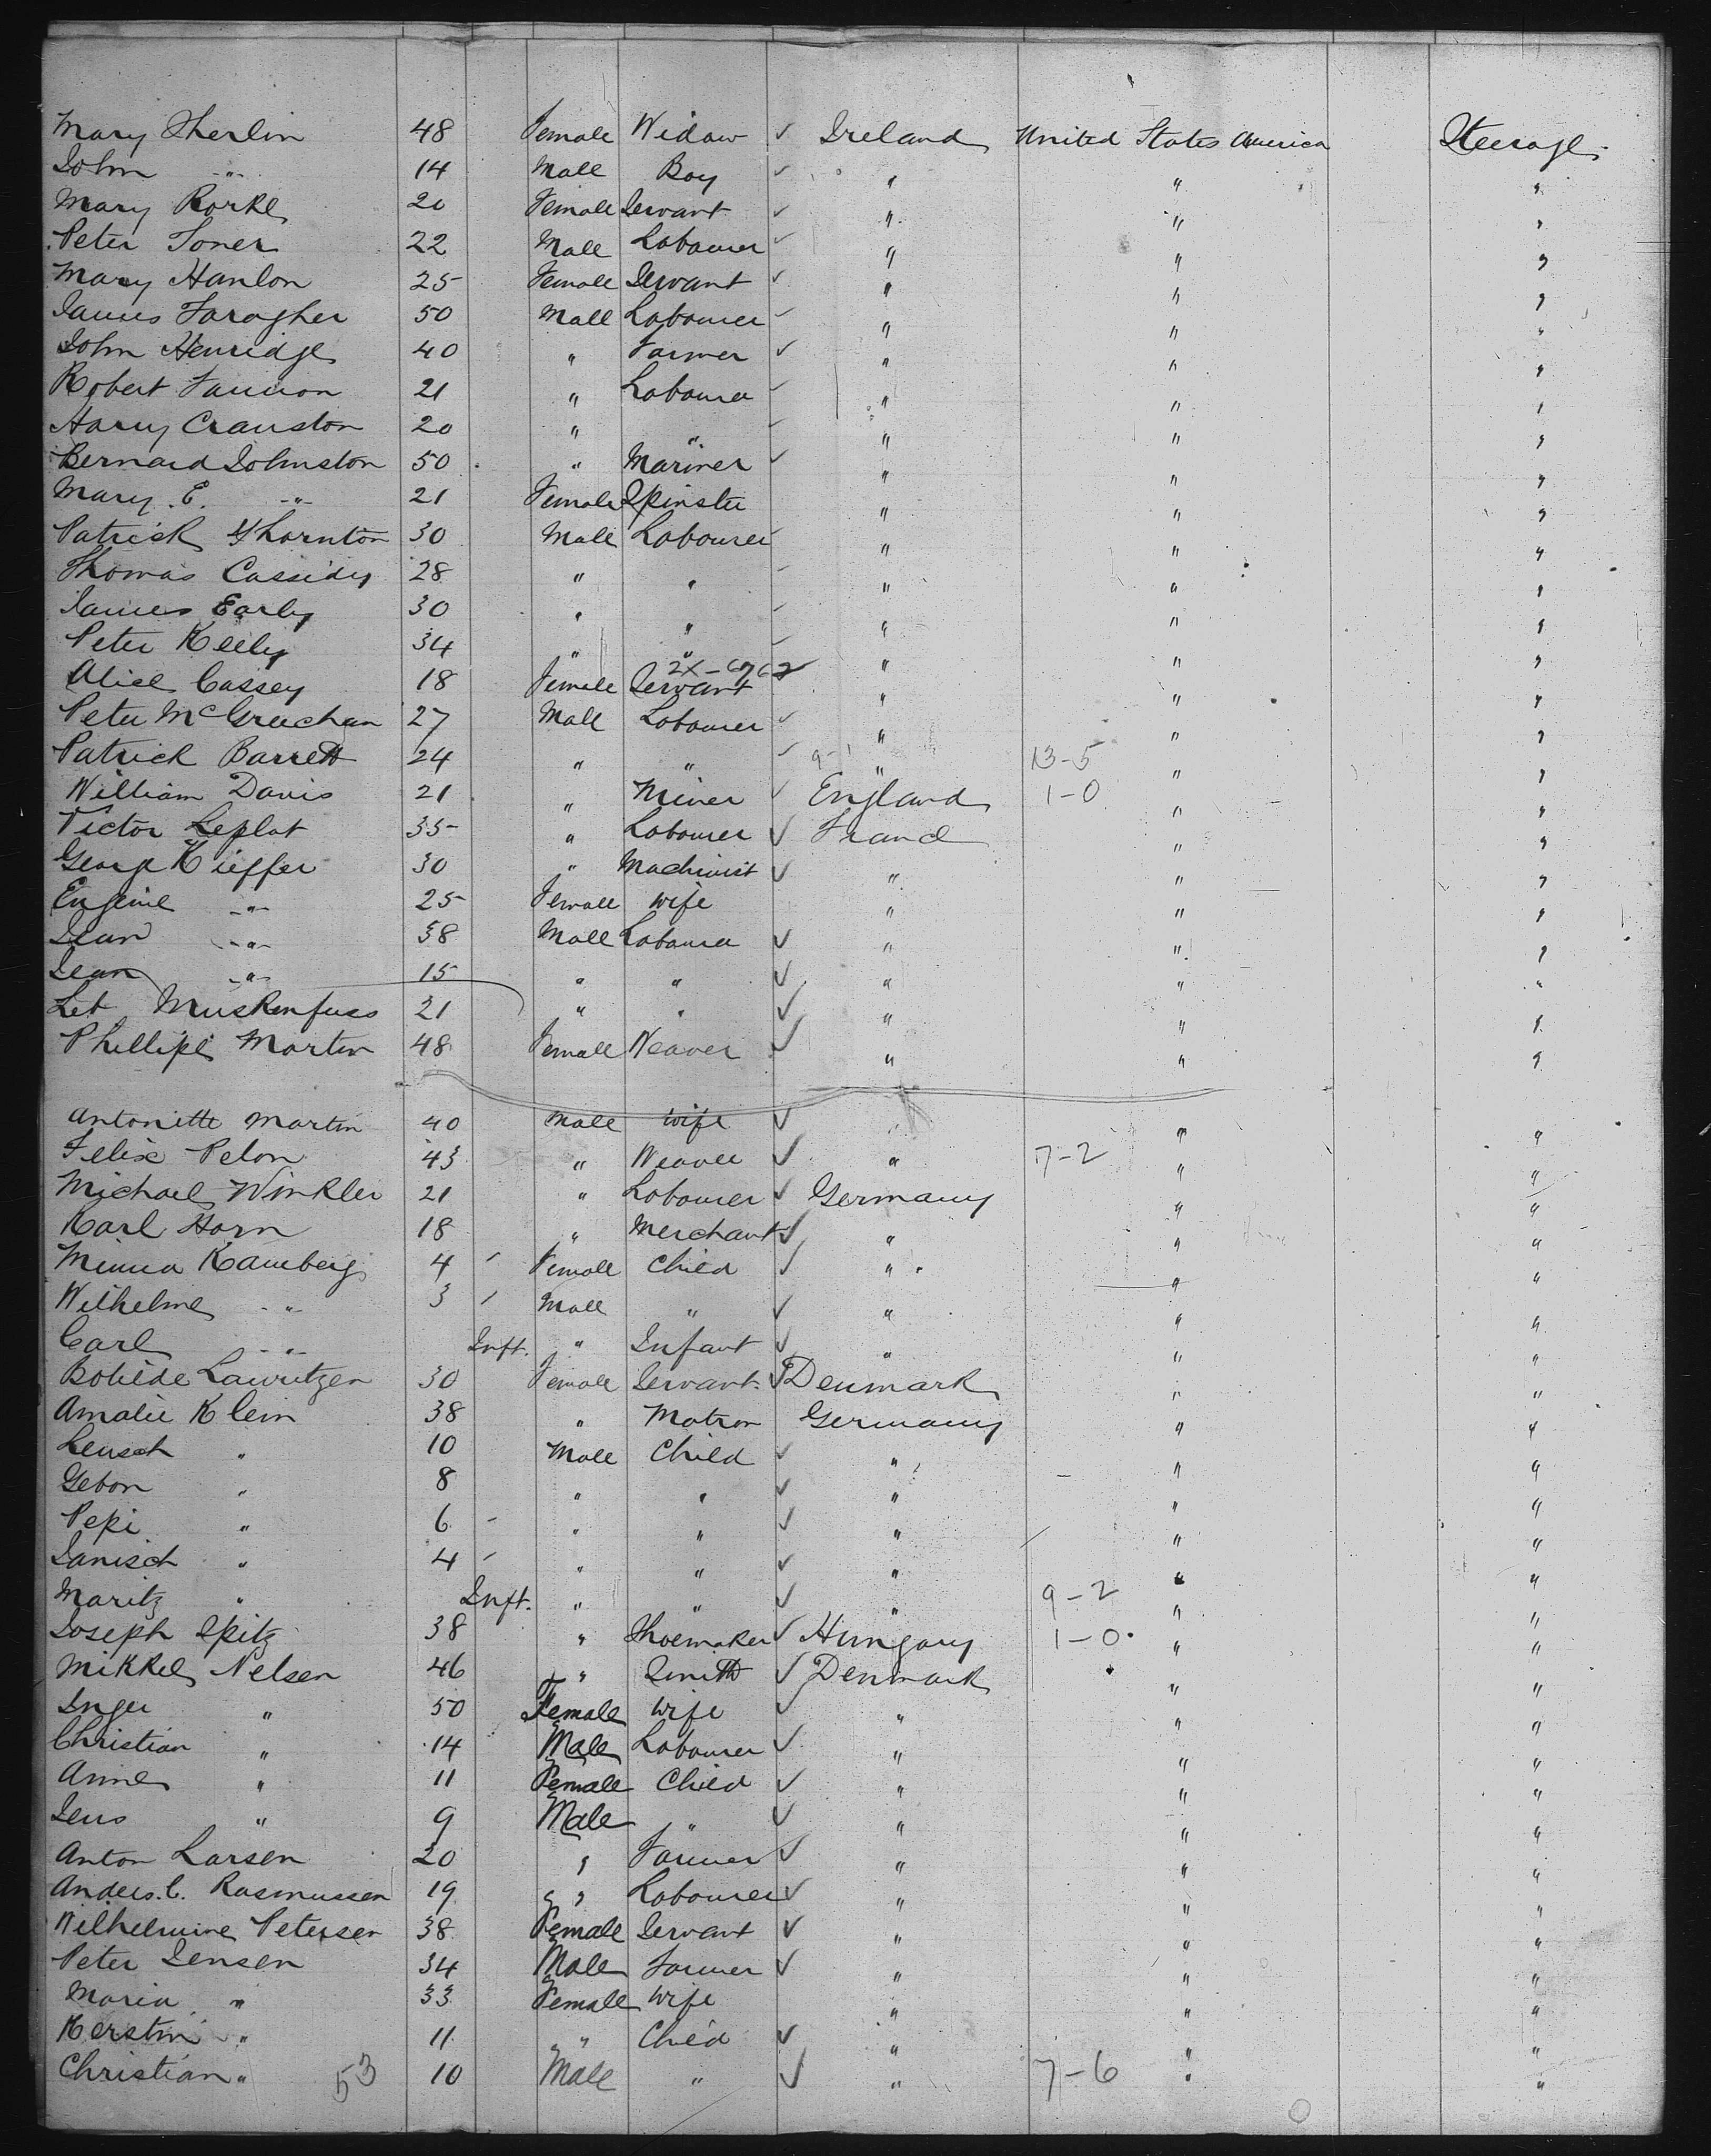 Mary Sherlin 48 Female Widow ✓ Ireland United States America Steerage
John " 14 Male Boy ✓ " " "
Mary Rorke 20 Female Servant ✓ " " "
Peter Toner 22 Male Labourer ✓ " " "
Mary Hanlon 25 Female Servant ✓ " " "
James Faragher 50 Male Labourer ✓ " " "
John Henridge 40 " Farmer ✓ " " "
Robert Fannon 21 " Labourer ✓ " " "
Harry Cranston 20 " " ✓ " " "
Bernard Johnston 50 " Mariner ✓ " " "
Mary E. " 21 Female Spinster " " "
Patrick Thornton 30 Male Labourer ✓ " " "
Thomas Cassidy 28 " " ✓ " " "
James Early 30 " " ✓ " " "
Peter Kelly 34 " " ✓ " " "
Alice Cassey 18 Female Servant ✓ " " "
Peter McGreechan 27 Male Labourer ✓ " " "
Patrick Barrett 24 " " ✓ " 13-5 " "
William Davis 21 " Miner ✓ England 1-0 " "
Victor Leplat 35 " Labourer ✓ France " "
George Kieffer 30 " Machinist ✓ " " "
Engenie " 25 Female Wife " " "
Jean " 58 Male Labourer ✓ " " "
Jean " 15 " " ✓ " " "
Let Muskenfuss 21 " " ✓ " " "
Phillipe Martin 48 Female Weaver ✓ " " "
Antoniette Martin 40 Male Wife ✓ " " "
Felix Pelon 43 " Weaver ✓ " 7-2 " "
Michael Winkler 21 " Labourer ✓ Germany " "
Karl Horn 18 " Merchant ✓ " " "
Minna Kamberg 4 Female Child ✓ " " "
Wilhelme " 3 Male " ✓ " " "
Carl " Inft. " Infant ✓ " " "
Botilde Lauritzen 30 Female Servant ✓ Denmark " "
Amalie Klein 38 " Matron Germany " "
Leusch " 10 Male Child ✓ " " "
Gebon " 8 " " ✓ " " "
Pepi " 6 " " ✓ " " "
Janisch " 4 " " ✓ " " "
Maritz " Inft. " " ✓ " 9-2 " "
Joseph Spitz 38 " Shoemaker ✓ Hungary 1-0 " "
Mikkel Nelsen 46 " Smith ✓ Denmark " "
Inger " 50 Female Wife ✓ " " "
Christian " 14 Male Labourer ✓ " " "
Anne " 11 Female Child ✓ " " "
Jens " 9 Male " ✓ " " "
Anton Larsen 20 " Farmer ✓ " " "
Anders. C. Rasmussen 19 " Labourer ✓ " " "
Wilhelmine Petersen 38 Female Servant ✓ " " "
Peter Jensen 34 Male Farmer ✓ " " "
Maria " 33 Female Wife " " "
Kerstin " 11 " Child ✓ " " "
Christian " 53 10 Male " ✓ " 7-6 " "